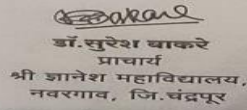 डॉ. सुरेश बाकरे
प्राचार्य
श्री ज्ञानेश महाविद्यालय,
नवरगाव, जि. चंद्रपूर